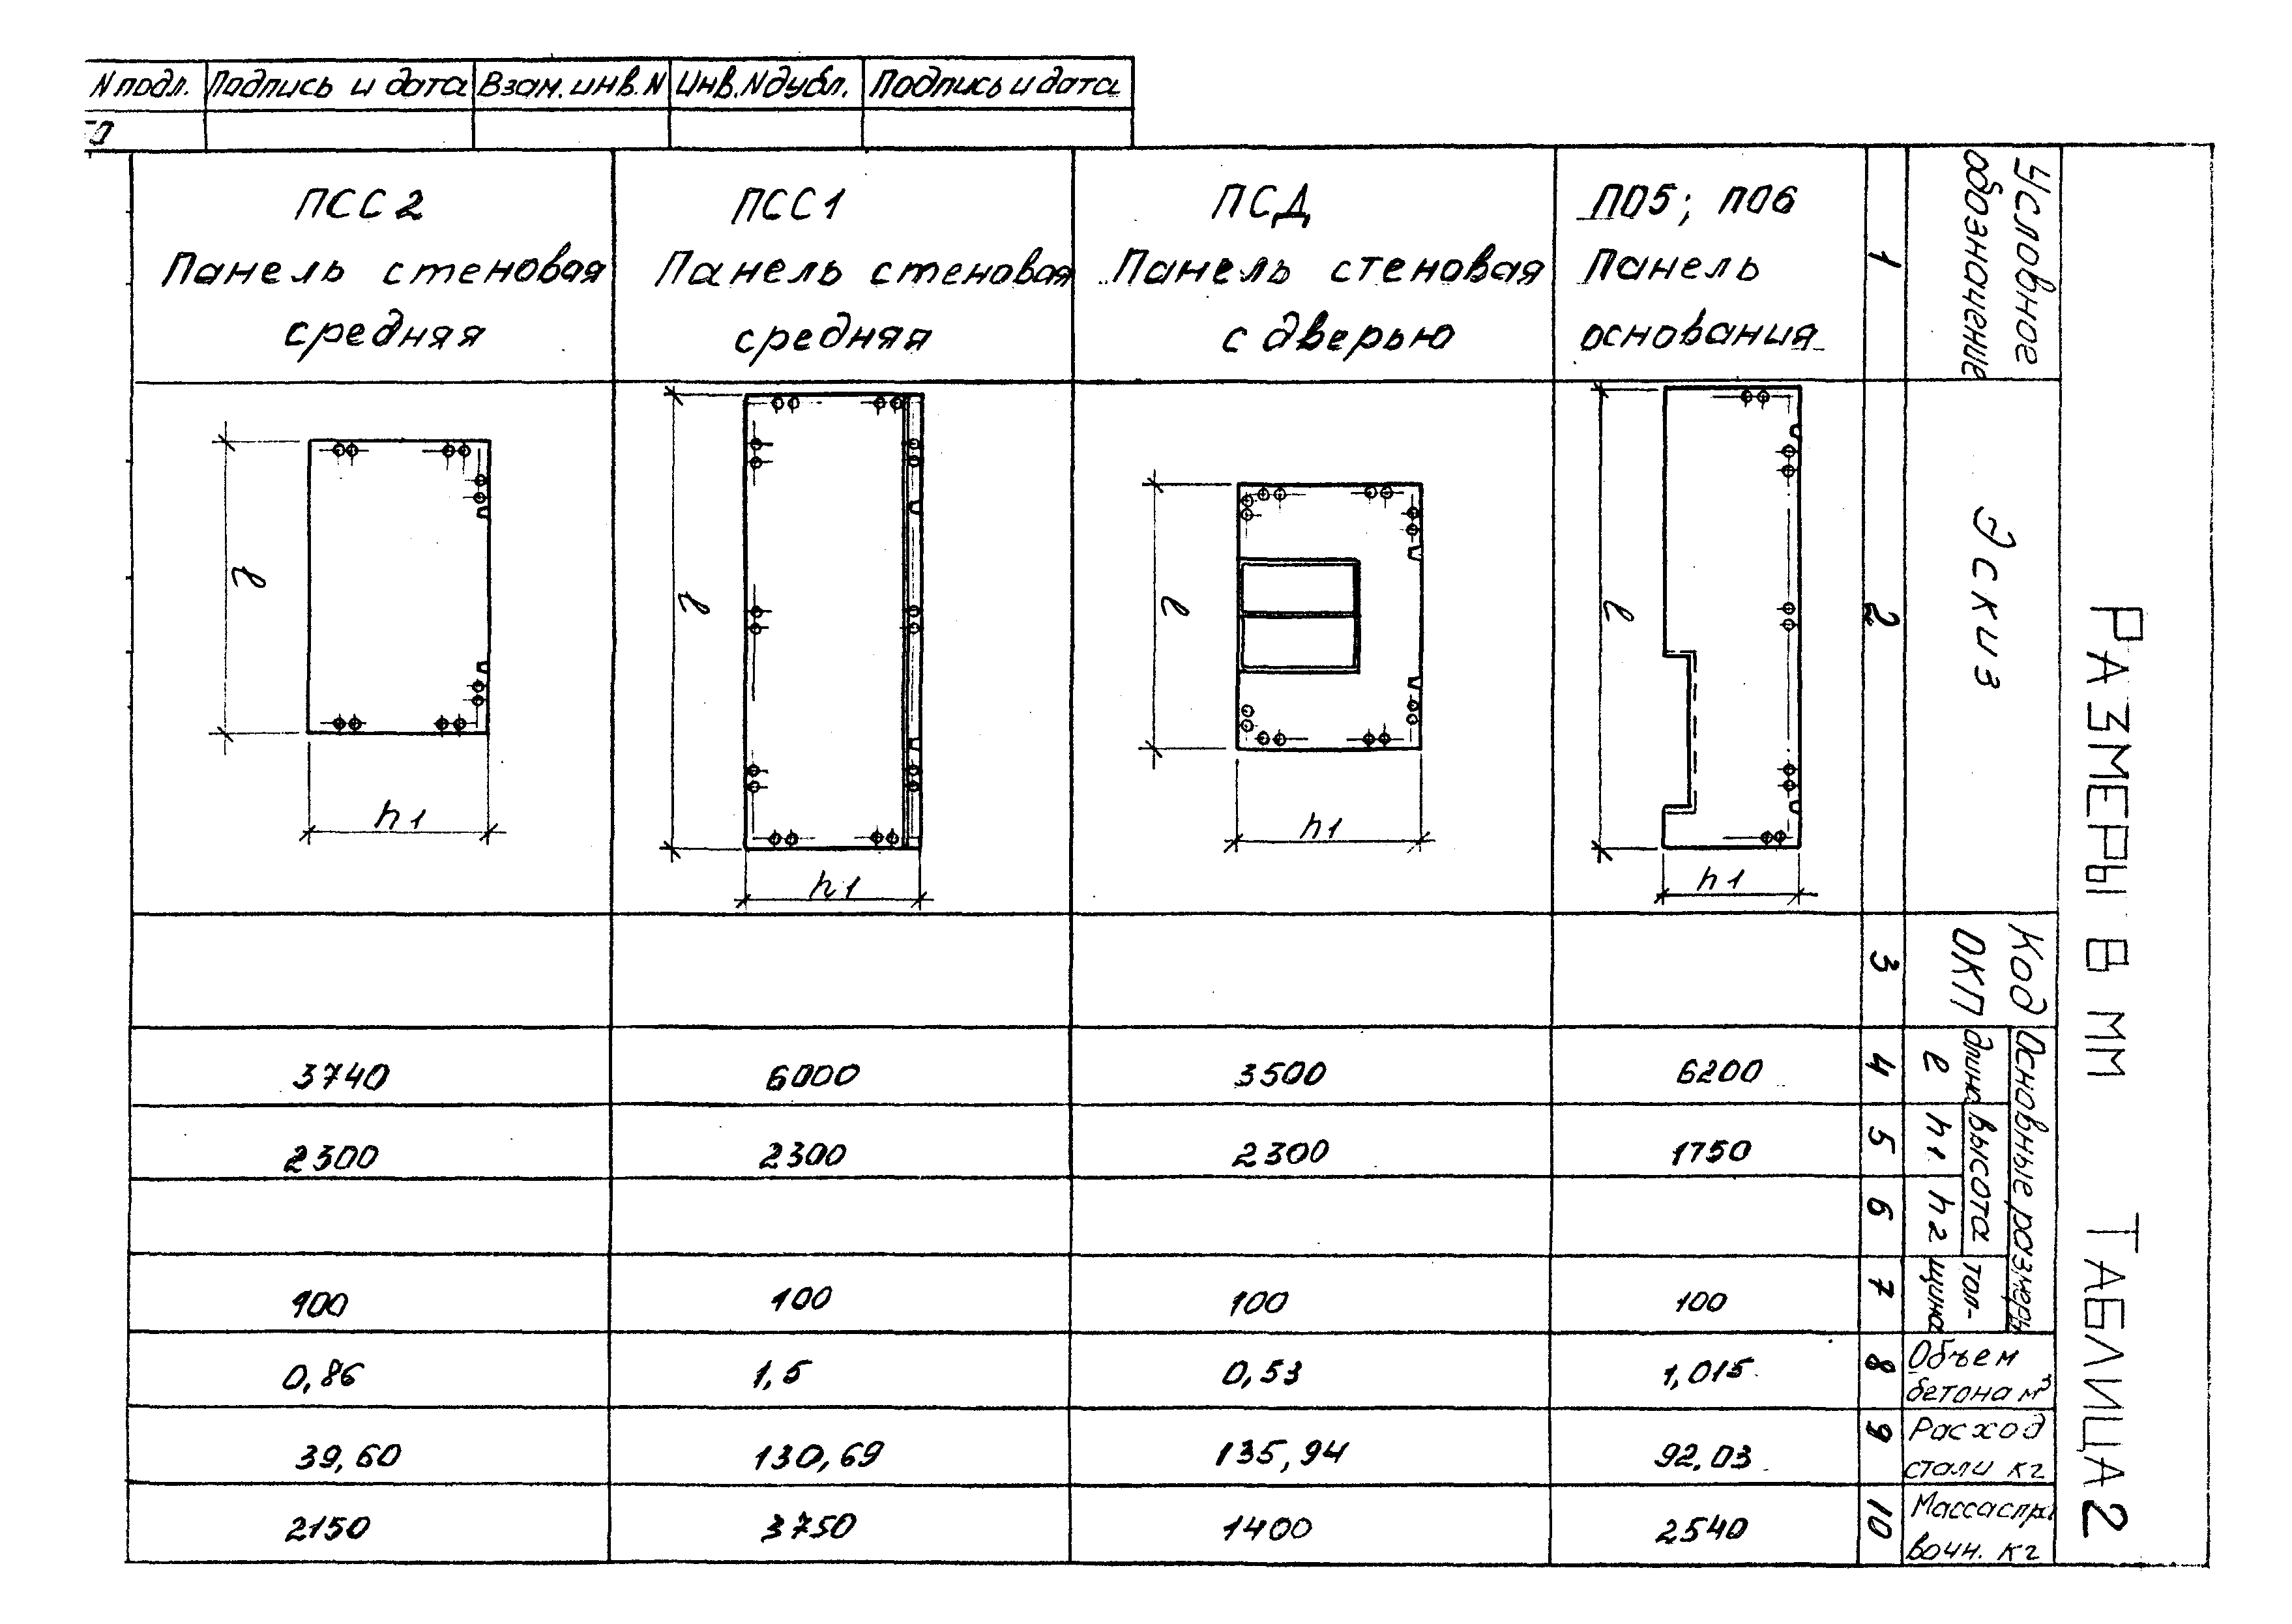 N подл.
Подпись и дата
Взам. инв. N
Инв. N дубл.
Подпись и дата
РАЗМЕРЫ В ММ
ТАБЛИЦА 2
Условное
обозначение
Эскиз
Код
ОКП
Основные размеры
длина
l
высота
h1
h2
тол-
щина
Объем
бетона м³
Расход
стали кг
Масса спра
вочн. кг
1
2
3
4
5
6
7
8
9
10
ПО5; ПО6
Панель
основания
l
h1
6200
1750
100
1,015
92,03
2540
ПСД
Панель стеновая
с дверью
l
h1
3500
2300
100
0,53
135,94
1400
ПСС1
Панель стеновая
средняя
l
h1
6000
2300
100
1,5
130,69
3750
ПСС2
Панель стеновая
средняя
l
h1
3740
2300
100
0,86
39,60
2150